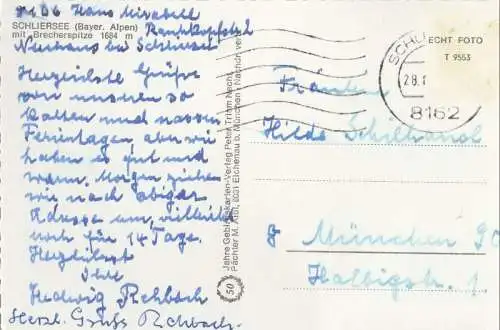 Haus Mirabell
SCHLIERSEE (Bayer. Alpen) Rauhkopfstr. 2
mit Brecherspitze 1684 m
Neuhaus bei Schliersee
Herzlichste Grüße
von unseren so
kalten und nassen
Ferientagen aber wir
haben es gut und
warm. Morgen ziehen
wir nach obiger
Adresse um, vielleicht
noch für 14 Tage.
Herzlichst
Ihre
Hedwig Rehbach
Herzl. Gruß Rehbach
50 Jahre Gebirgskarten-Verlag Peter Trimm Nachf.
Pächter M. 8031 Eichenau b. München · Nachdruck verb.
SCHL
28.
8162
ECHT FOTO
T 9553
Fräulein
Hilde
8 München 90
Halbigstr. 1